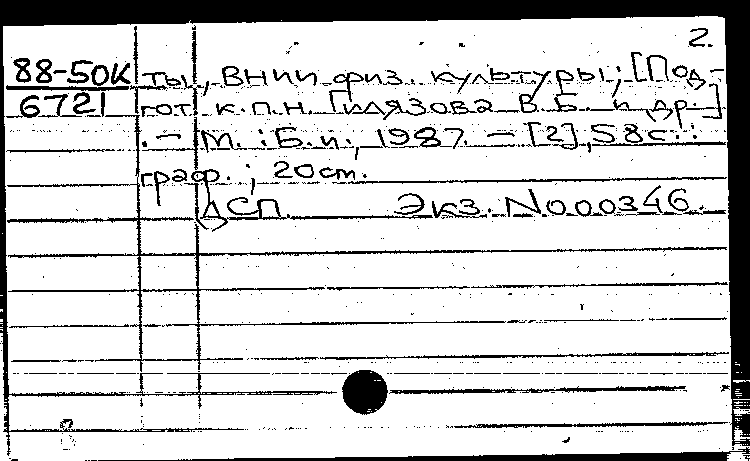 2.
88-50К ты, ВНИИ физ. культуры; [Под-
6721 гот. к.п.н. Гилязова В.Б. и др.]
. - М. : Б.и., 1987. - [2], 58 с. :
граф. ; 20 см.
ДСП Экз. N000346.